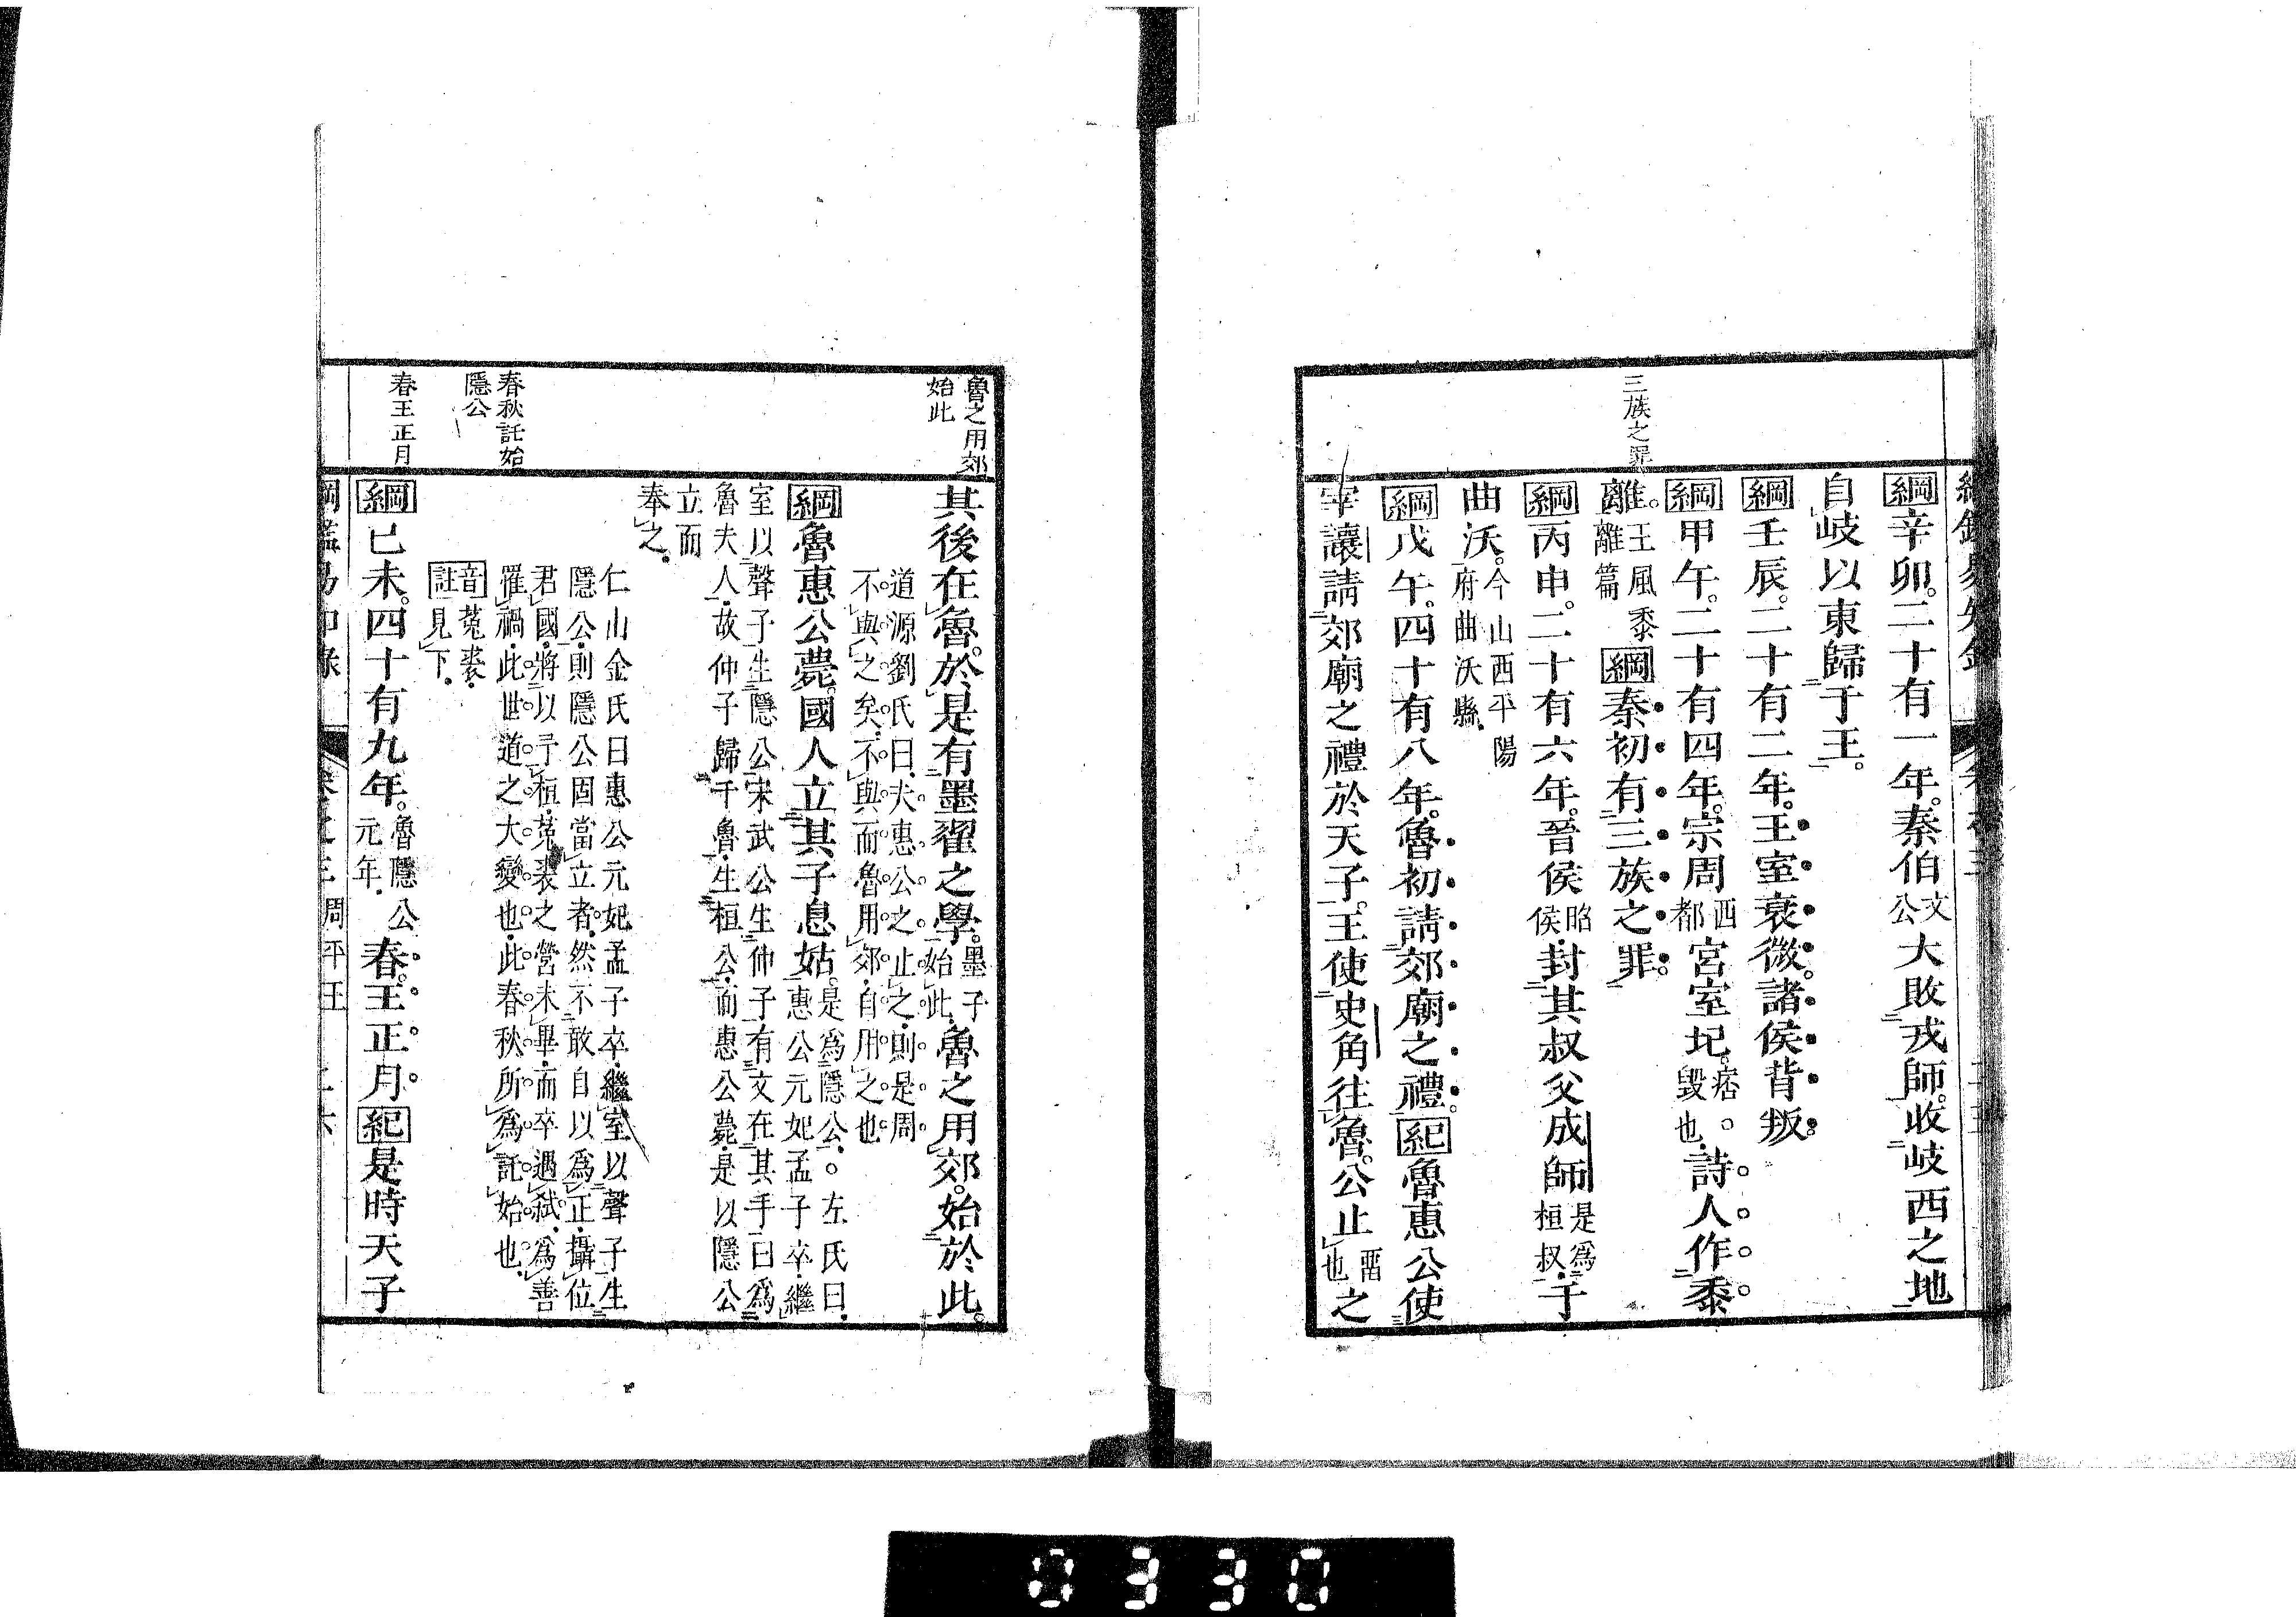 三族之罪
綱辛卯。二十有一年。秦伯文公大敗戎師。收岐西之地
自岐以東歸于王。
綱壬辰。二十有二年。王室衰微。諸侯背叛。
綱甲午。二十有四年。宗周西都宮室圮。痞毀也。詩人作黍
離。王風黍離篇 綱秦初有三族之罪。
綱丙申。二十有六年。晉侯昭侯封其叔父成師是爲桓叔于
曲沃。今山西平陽府曲沃縣
綱戊午。四十有八年。魯初請郊廟之禮。紀魯惠公使
宰讓請郊廟之禮於天子。王使史角往魯。公止畱也之
魯之用郊
始此
春秋託始
隱公
春王正月
其後在魯。於是有墨翟之學。墨子始此魯之用郊。始於此。
道源劉氏曰夫惠公之止之則是周
不與之矣不與而魯用郊自用之也
綱魯惠公薨。國人立其子息姑。是爲隱公○左氏曰惠公元妃孟子卒繼
室以聲子生隱公宋武公生仲子有文在其手曰爲
魯夫人故仲子歸于魯生桓公而惠公薨是以隱公
立而
奉之
仁山金氏曰惠公元妃孟子卒繼室以聲子生
隱公則隱公固當立者然不敢自以爲正攝位
君國將以予桓菟裘之營未畢而卒遇弒爲善
罹禍此世道之大變也此春秋所爲託始也
音註菟裘見下
綱己未。四十有九年。魯隱公元年春。王正月紀是時天子
綱鑑易知錄 卷之三周平王